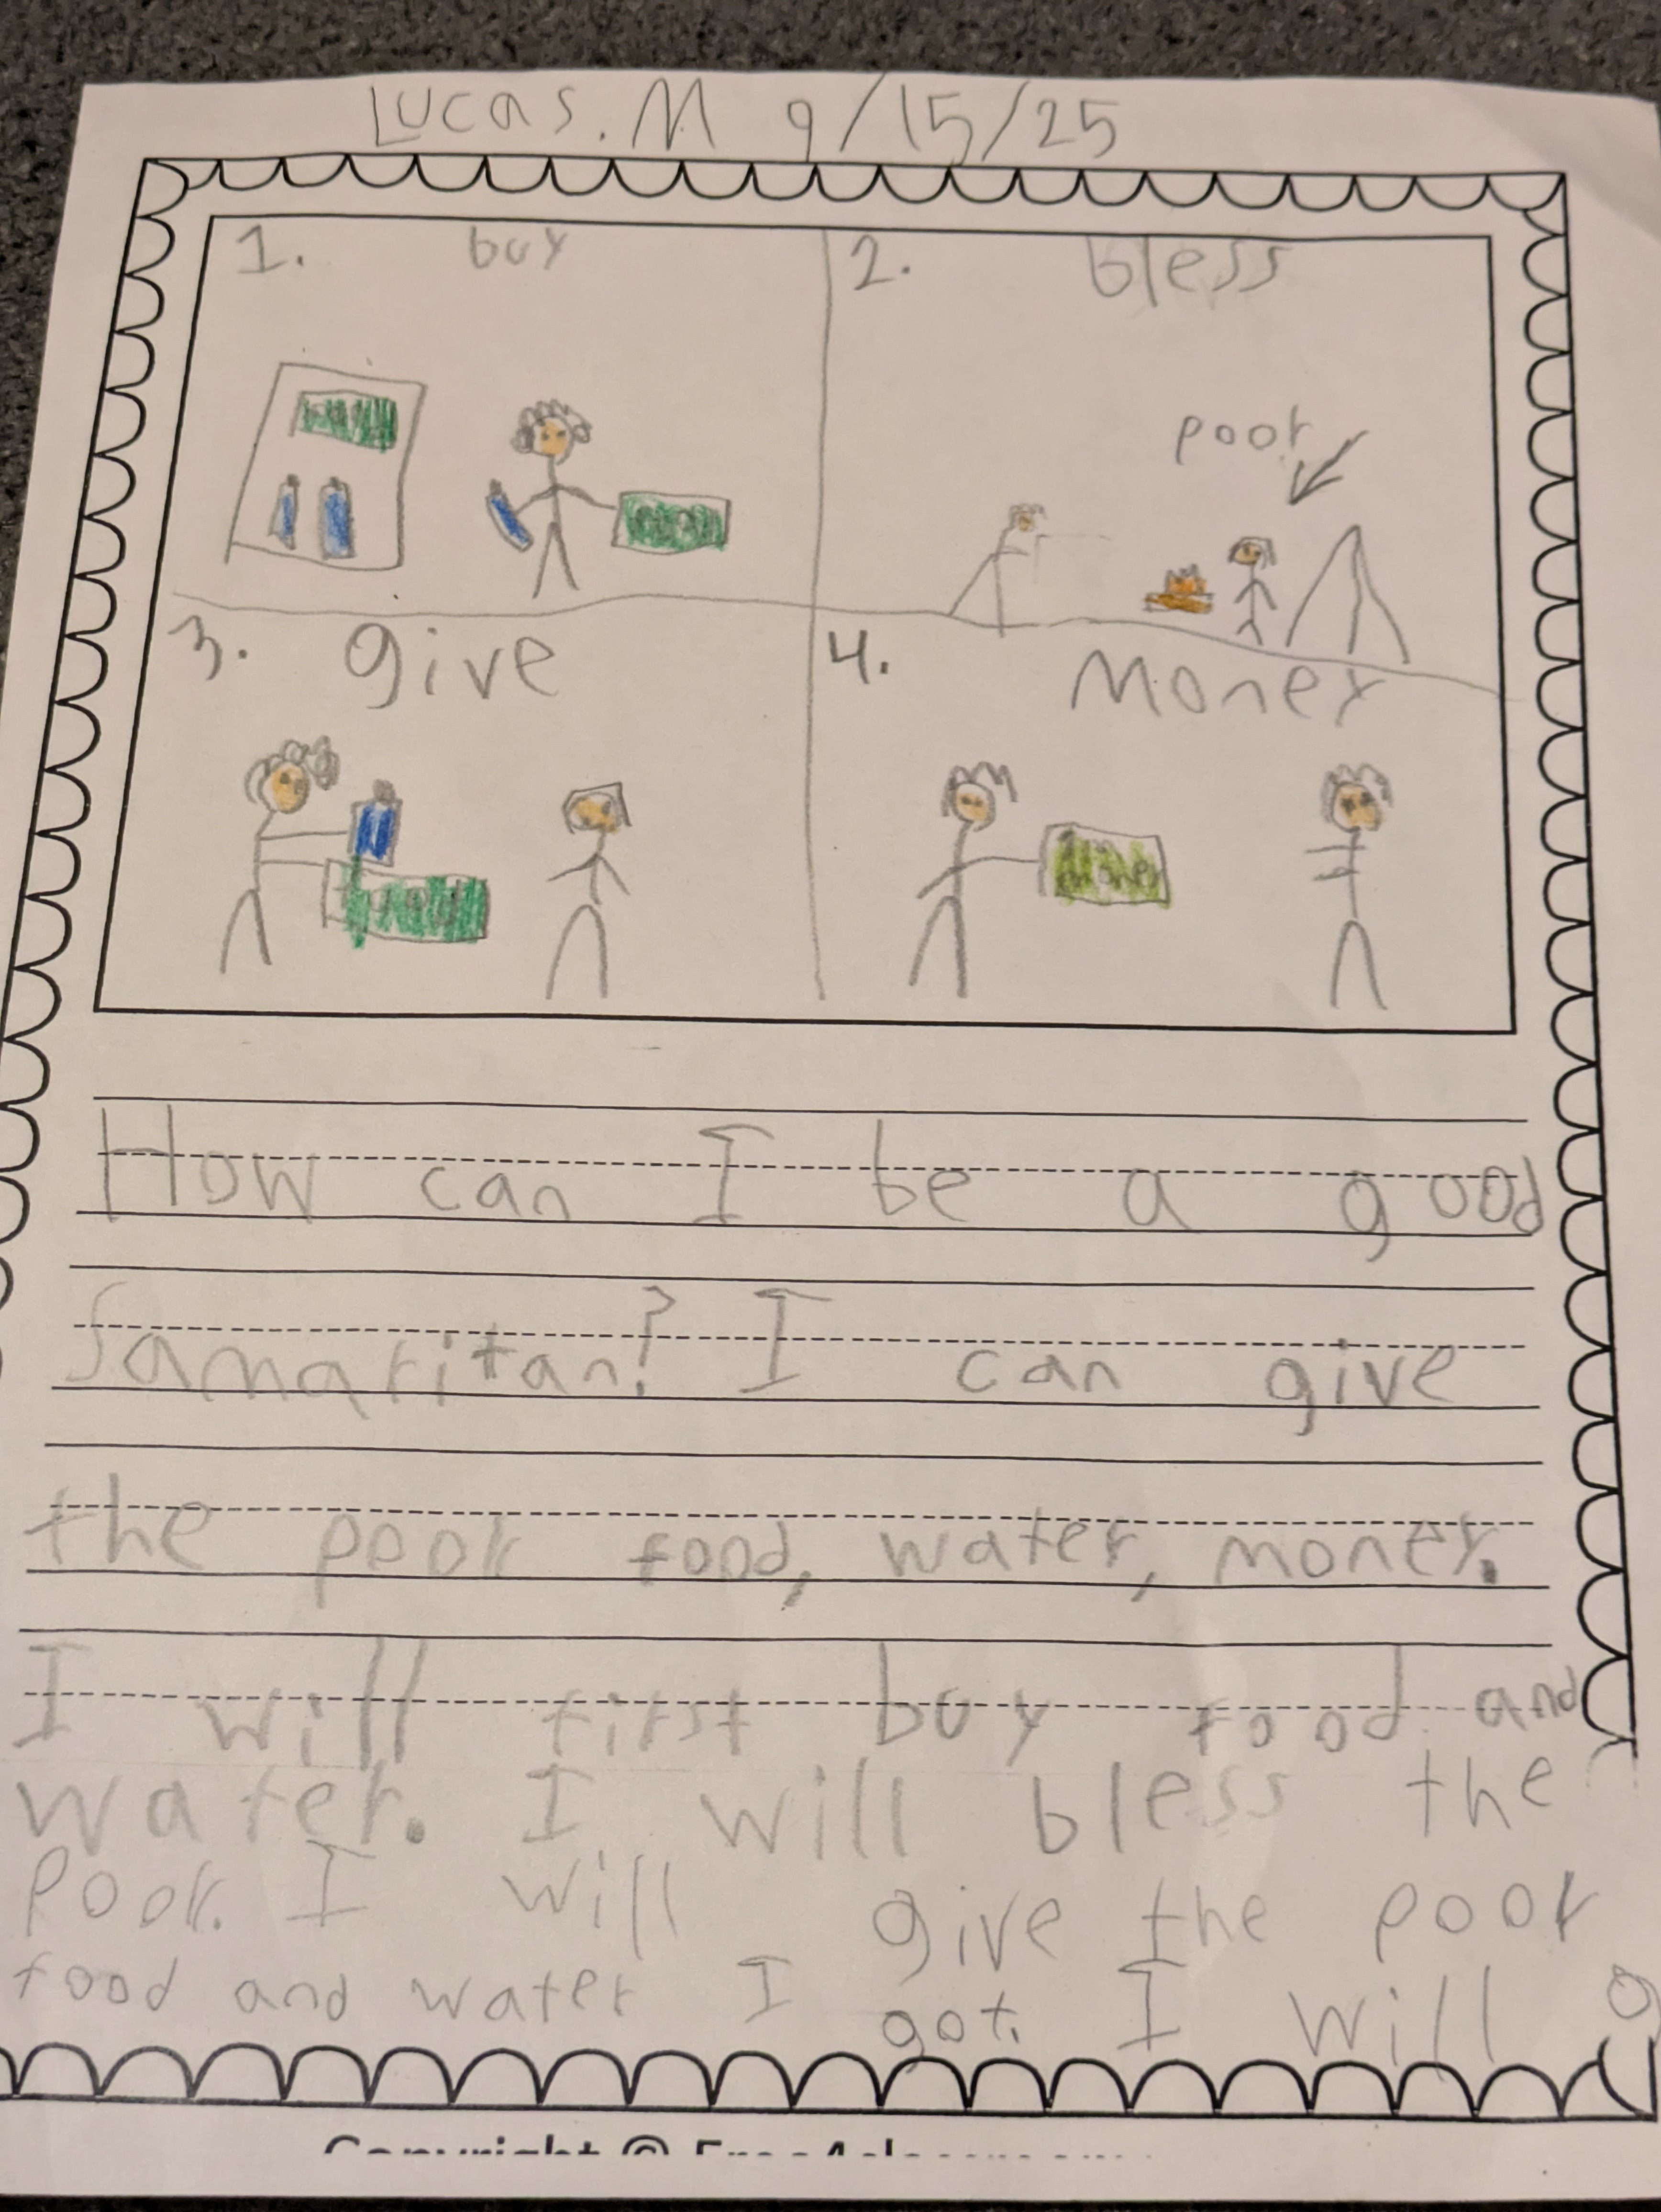 Lucas. M 9/15/25
1. buy
2. bless
poor
3. give
4. Money
money
How can I be a good
Samaritan? I can give
the poor food, water, money.
I will first buy food and
water. I will bless the
poor. I will give the poor
food and water I got. I will g
Copyright ©